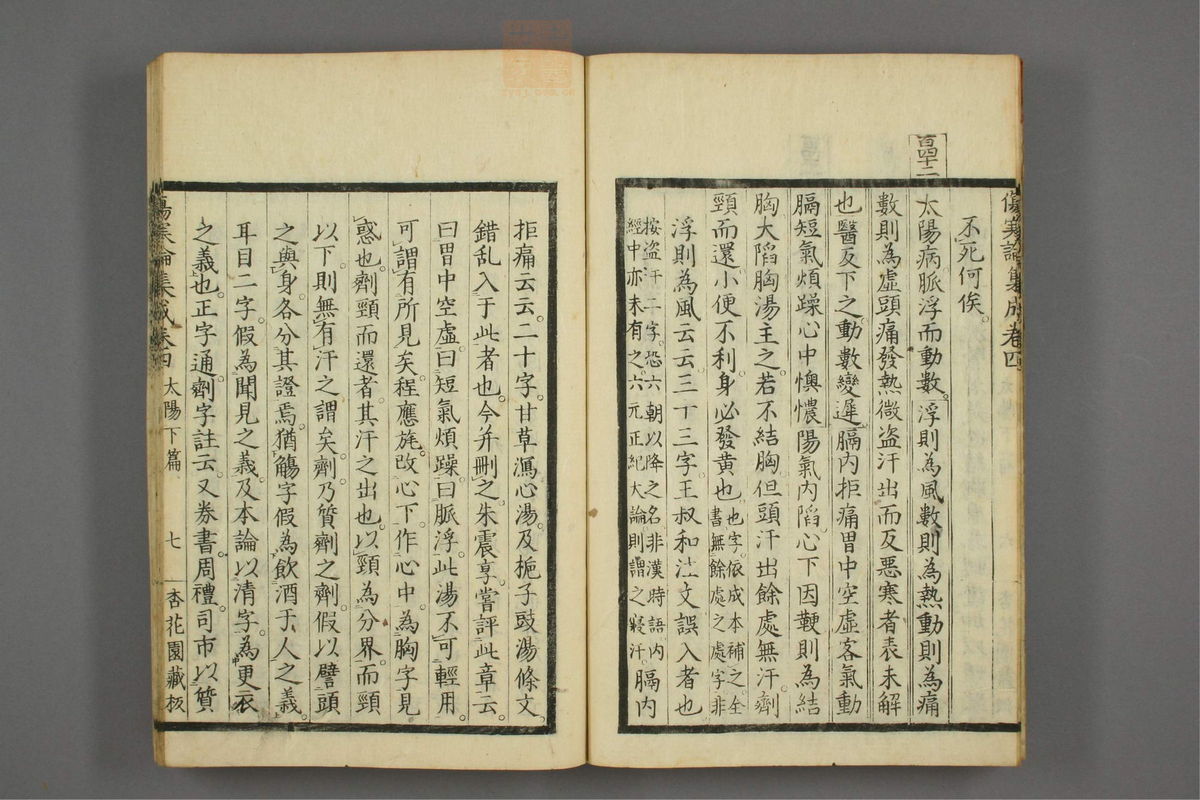 傷寒論集成卷四
不死何俟。
百四十二
太陽病。脈浮而動數。浮則為風。數則為熱。動則為痛
數則為虛。頭痛發熱。微盜汗出。而反惡寒者。表未解
也。醫反下之。動數變遲。膈內拒痛。胃中空虛。客氣動
膈。短氣煩躁。心中懊憹。陽氣內陷。心下因鞕。則為結
胸。大陷胸湯主之。若不結胸。但頭汗出。餘處無汗。劑
頸而還。小便不利。身必發黄也。也字。依成本補之。全書。無餘處之處字。非
浮則為風云云。三十三字。王叔和注文誤入者也
按盜汗二字。恐六朝以降之名。非漢時語。內經中亦未有之。六元正紀大論。則謂之寢汗。膈內
拒痛云云。二十字。甘草瀉心湯。及梔子豉湯條文。
錯乱入于此者也。今并刪之。朱震亨嘗評此章云。
曰胃中空虛。曰短氣煩躁。曰脈浮。此湯不可輕用。
可謂有所見矣。程應旄。改心下。作心中。為胸字見
惑也。劑頸而還者。其汗之出也。以頸為分界。而頸
以下。則無有汗之謂矣。劑。乃質劑之劑。假以譬頭
之與身。各分其證焉。猶觴字假為飲酒于人之義。
耳目二字。假為聞見之義。及本論以清字。為更衣
之義也。正字通。劑字註云。又券書。周禮司市。以質
傷寒論集成卷四 太陽下篇 七 杏花園藏板